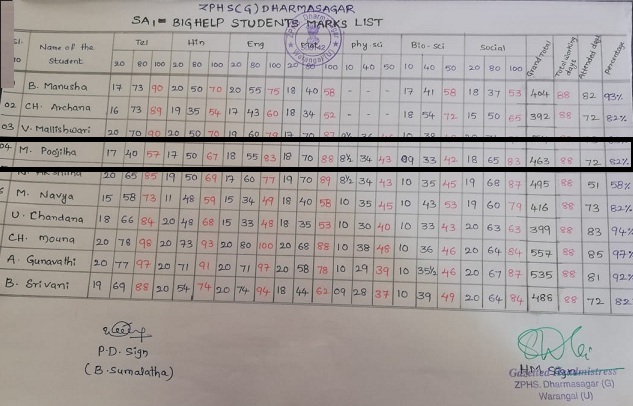 ZPHS(G) DHARMASAGAR
SA1 = BIG HELP STUDENTS MARKS LIST
Name of the Student Tel Hin Eng phy sci Bio-sci Social Grand Total Total working days Attended days Percentage
20 80 100 20 80 100 20 80 100 20 80 100 10 40 50 10 40 50 20 80 100
B. Manusha 17 73 90 20 50 70 20 55 75 18 40 58 - - - 17 41 58 18 37 53 404 88 82 93%
02 CH. Archana 16 73 89 19 35 54 17 43 60 18 34 52 - - - 18 54 72 15 50 65 392 88 72 82%
03 V. Mallishwari 20 70 90 20 50 70 19 60 79 17 70 87
04 M. Poojilha 17 40 57 17 50 67 18 55 83 18 70 88 8½ 34 43 09 33 42 18 65 83 463 88 72 82%
20 65 85 19 50 69 17 60 77 19 70 89 8½ 34 43 10 35 45 19 68 87 495 88 51 58%
M. Navya 15 58 73 11 48 59 15 34 49 18 40 58 10 35 45 10 43 53 19 60 79 416 88 73 82%
U. Chandana 18 66 84 20 48 68 15 33 48 18 35 53 10 30 40 10 33 43 20 63 63 399 88 83 94%
CH. Mouna 20 78 98 20 73 93 20 80 100 20 68 88 10 38 48 10 36 46 20 64 84 557 88 85 97%
A. Gunavathi 20 77 97 20 71 91 20 71 97 20 58 78 10 29 39 10 35½ 46 20 67 87 535 88 81 92%
B. Srivani 19 69 88 20 54 74 20 74 94 18 44 62 09 28 37 10 39 49 20 64 84 488 88 72 82
P.D. Sign
(B. Sumalatha)
HM Sign
Gazetted Headmistress
ZPHS. Dharmasagar (G)
Warangal (U)